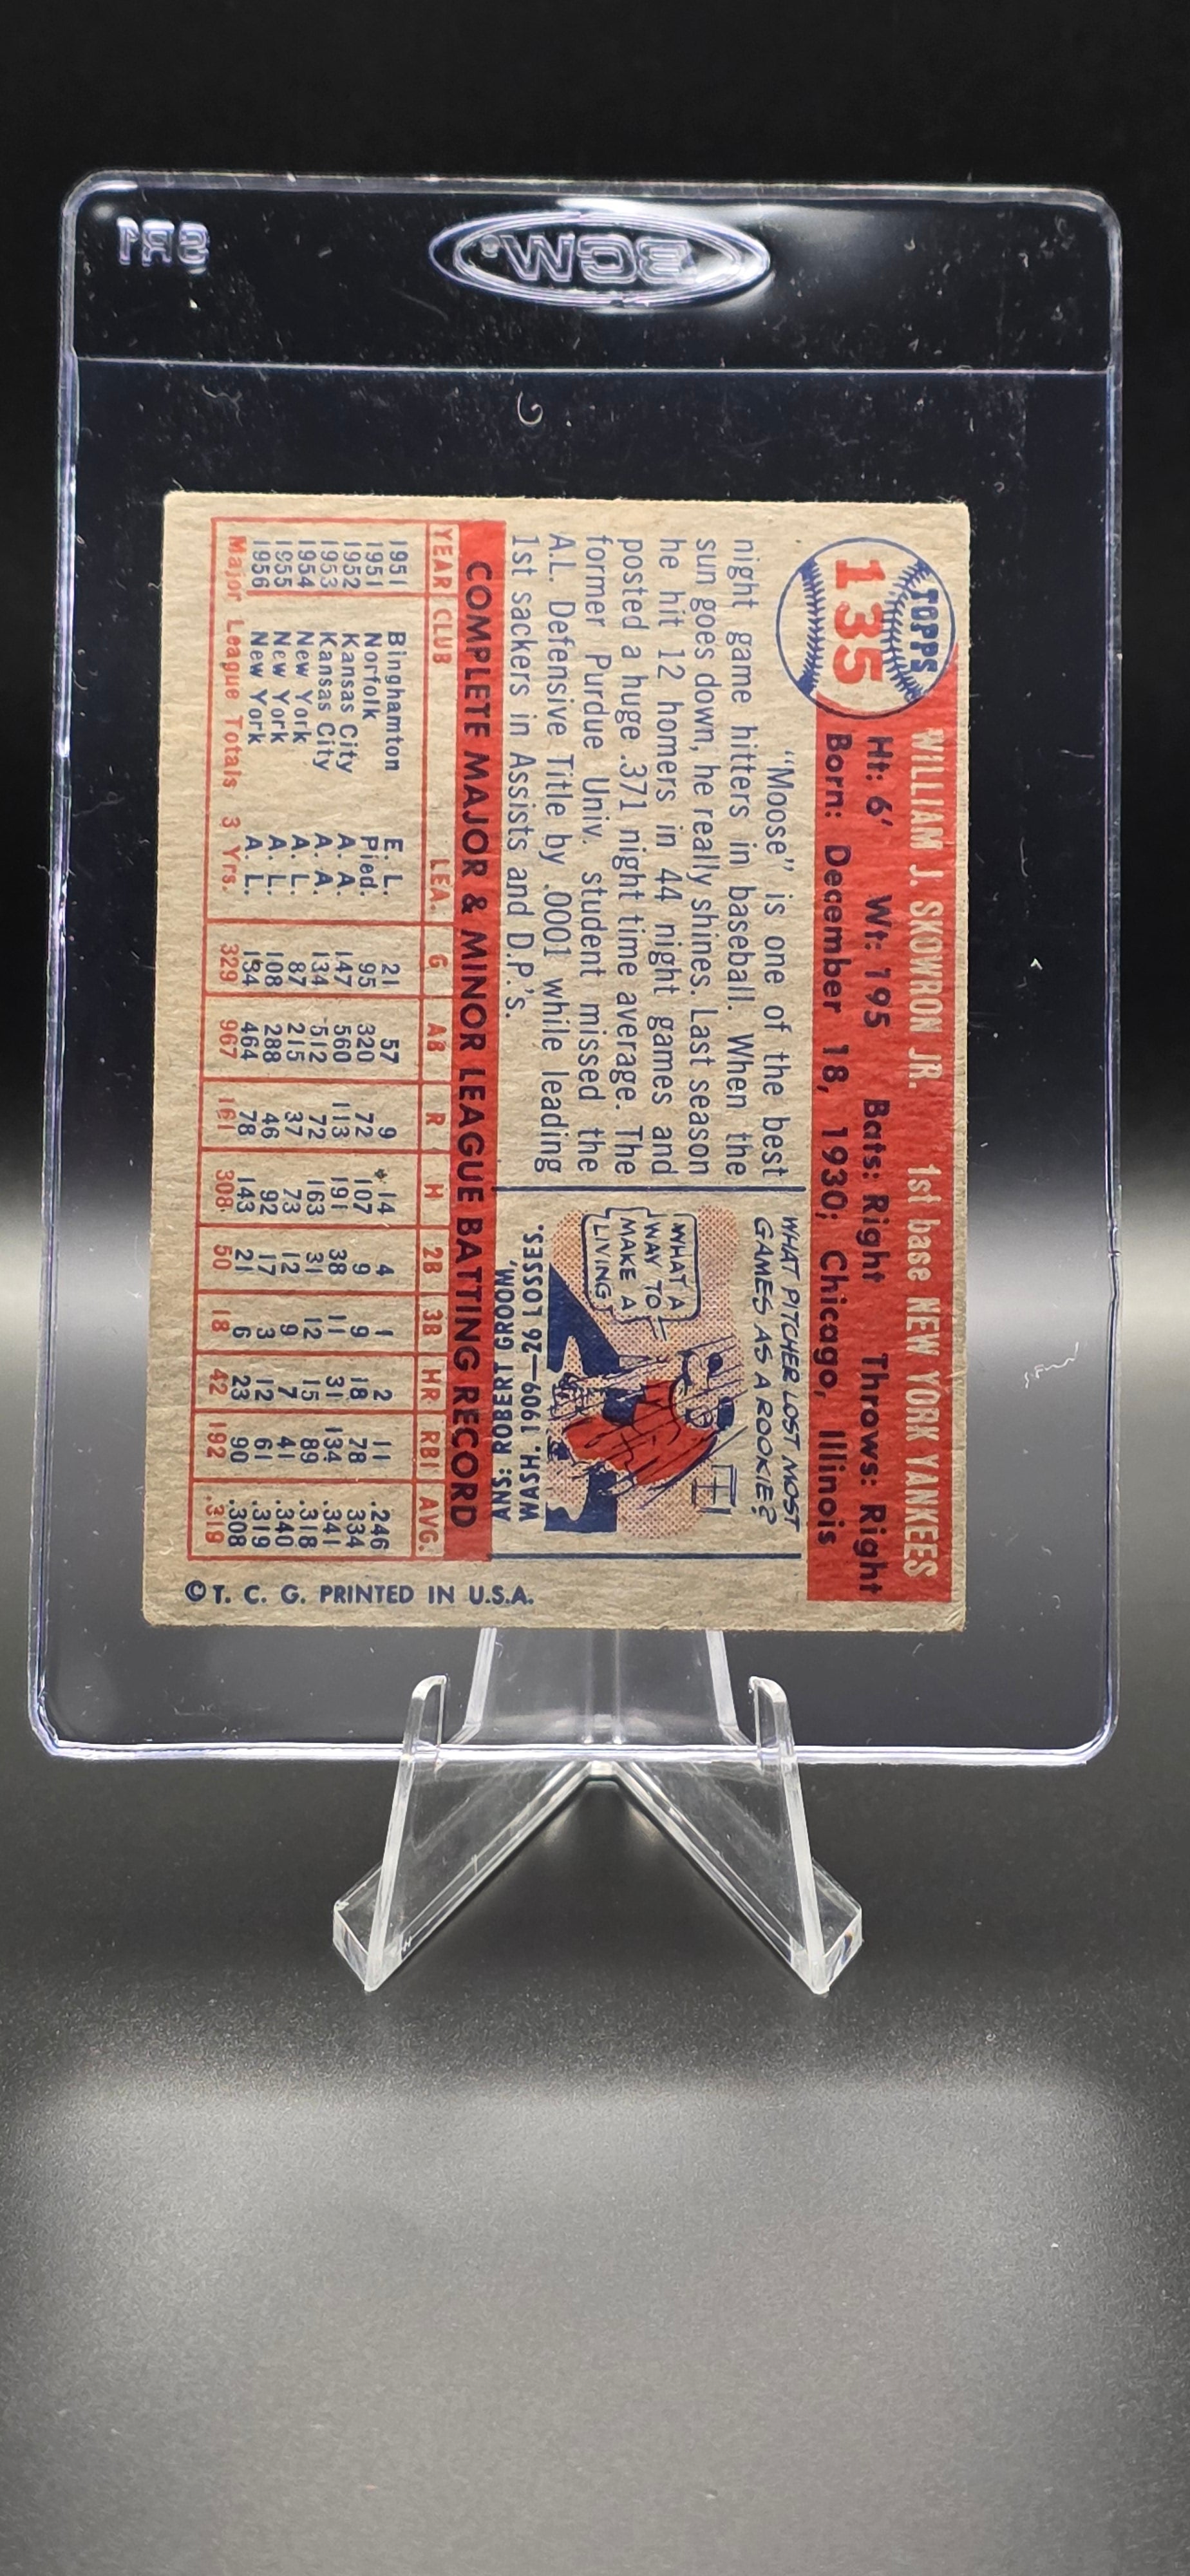 SR1
BCW
TOPPS
135
WILLIAM J. SKOWRON JR. 1st base NEW YORK YANKEES
Ht: 6' Wt: 195 Bats: Right Throws: Right
Born: December 18, 1930; Chicago, Illinois
"Moose" is one of the best
night game hitters in baseball. When the
sun goes down, he really shines. Last season
he hit 12 homers in 44 night games and
posted a huge .371 night time average. The
former Purdue Univ. student missed the
A.L. Defensive Title by .0001 while leading
1st sackers in Assists and D.P.'s.
WHAT PITCHER LOST MOST
GAMES AS A ROOKIE?
WHAT A
WAY TO
MAKE A
LIVING!
ANS: ROBERT GROOM,
WASH. 1909—26 LOSSES.
COMPLETE MAJOR & MINOR LEAGUE BATTING RECORD
YEAR CLUB LEA. G AB R H 2B 3B HR RBI AVG.
1951 Binghamton E. L. 21 57 9 14 4 1 2 11 .246
1951 Norfolk Pied. 95 320 72 107 9 9 18 78 .334
1952 Kansas City A. A. 147 560 113 191 38 11 31 134 .341
1953 Kansas City A. A. 134 512 72 163 31 12 15 89 .318
1954 New York A. L. 87 215 37 73 12 9 7 41 .340
1955 New York A. L. 108 288 46 92 17 3 12 61 .319
1956 New York A. L. 134 464 78 143 21 6 23 90 .308
Major League Totals 3 Yrs. 329 967 161 308 50 18 42 192 .319
© T. C. G. PRINTED IN U.S.A.